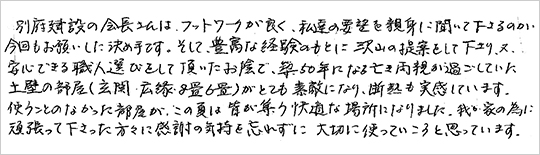 別府建設の会長さんは、フットワークが良く、私達の要望を親身に聞いて下さるのが
今回もお願いした決め手です。そして、豊富な経験のもとに沢山の提案をして下さり、又、
安心できる職人選びをして頂いたお陰で、築50年になる亡き両親が過ごしていた
土壁の部屋(玄関・広縁・8畳6畳)がとても素敵になり、断熱も実感しています。
使うことのなかった部屋が、この夏は皆が集う快適な場所になりました。我が家の為に
頑張って下さった方々に感謝の気持を忘れずに大切に使っていこうと思っています。